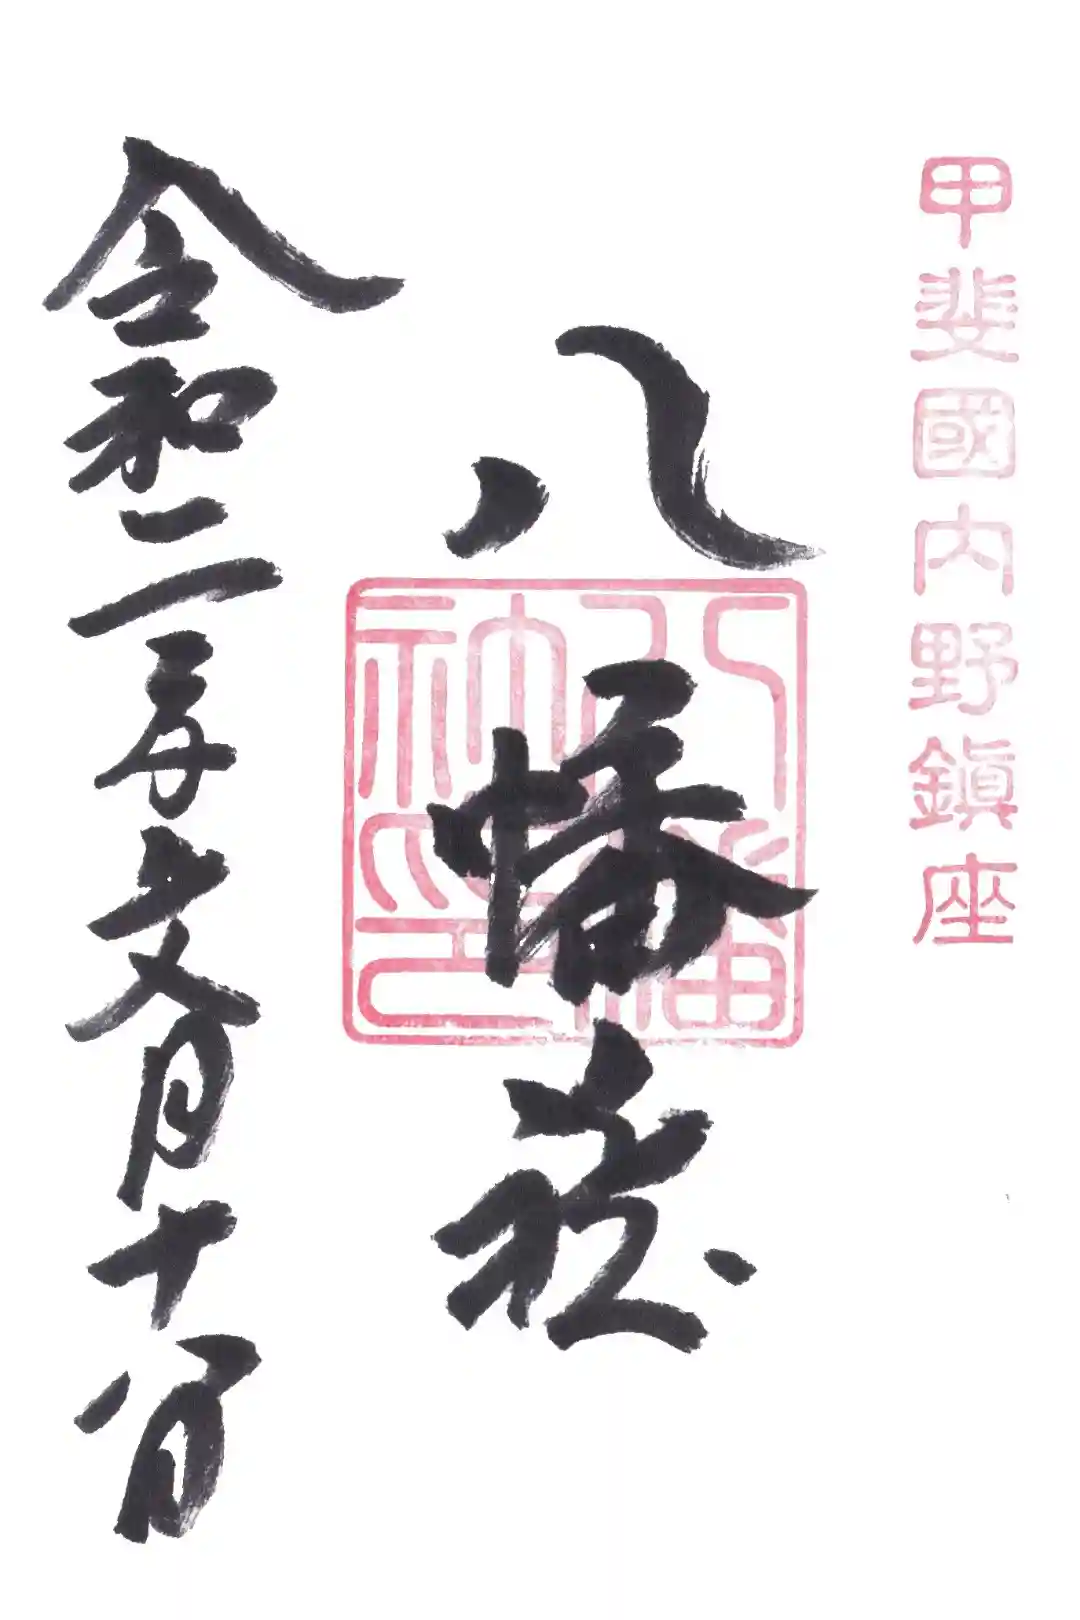 甲斐國内野鎮座
八幡社
八幡神印
令和二年文月十八日